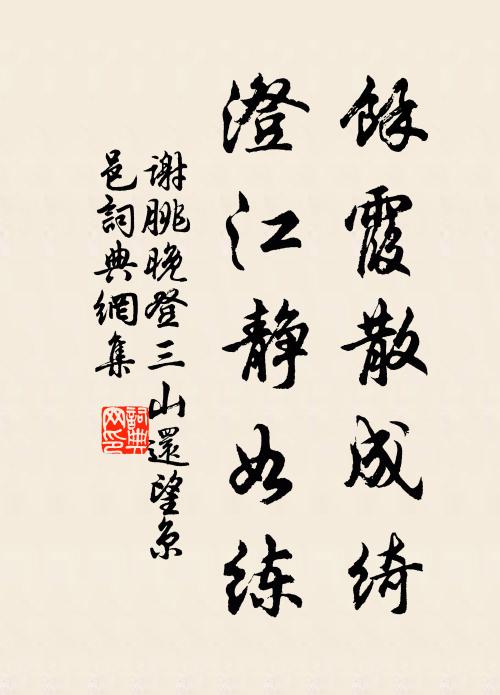 餘霞散成綺
澄江静如练
谢朓晚登三山還望京
邑詞典網集
詞典
网印